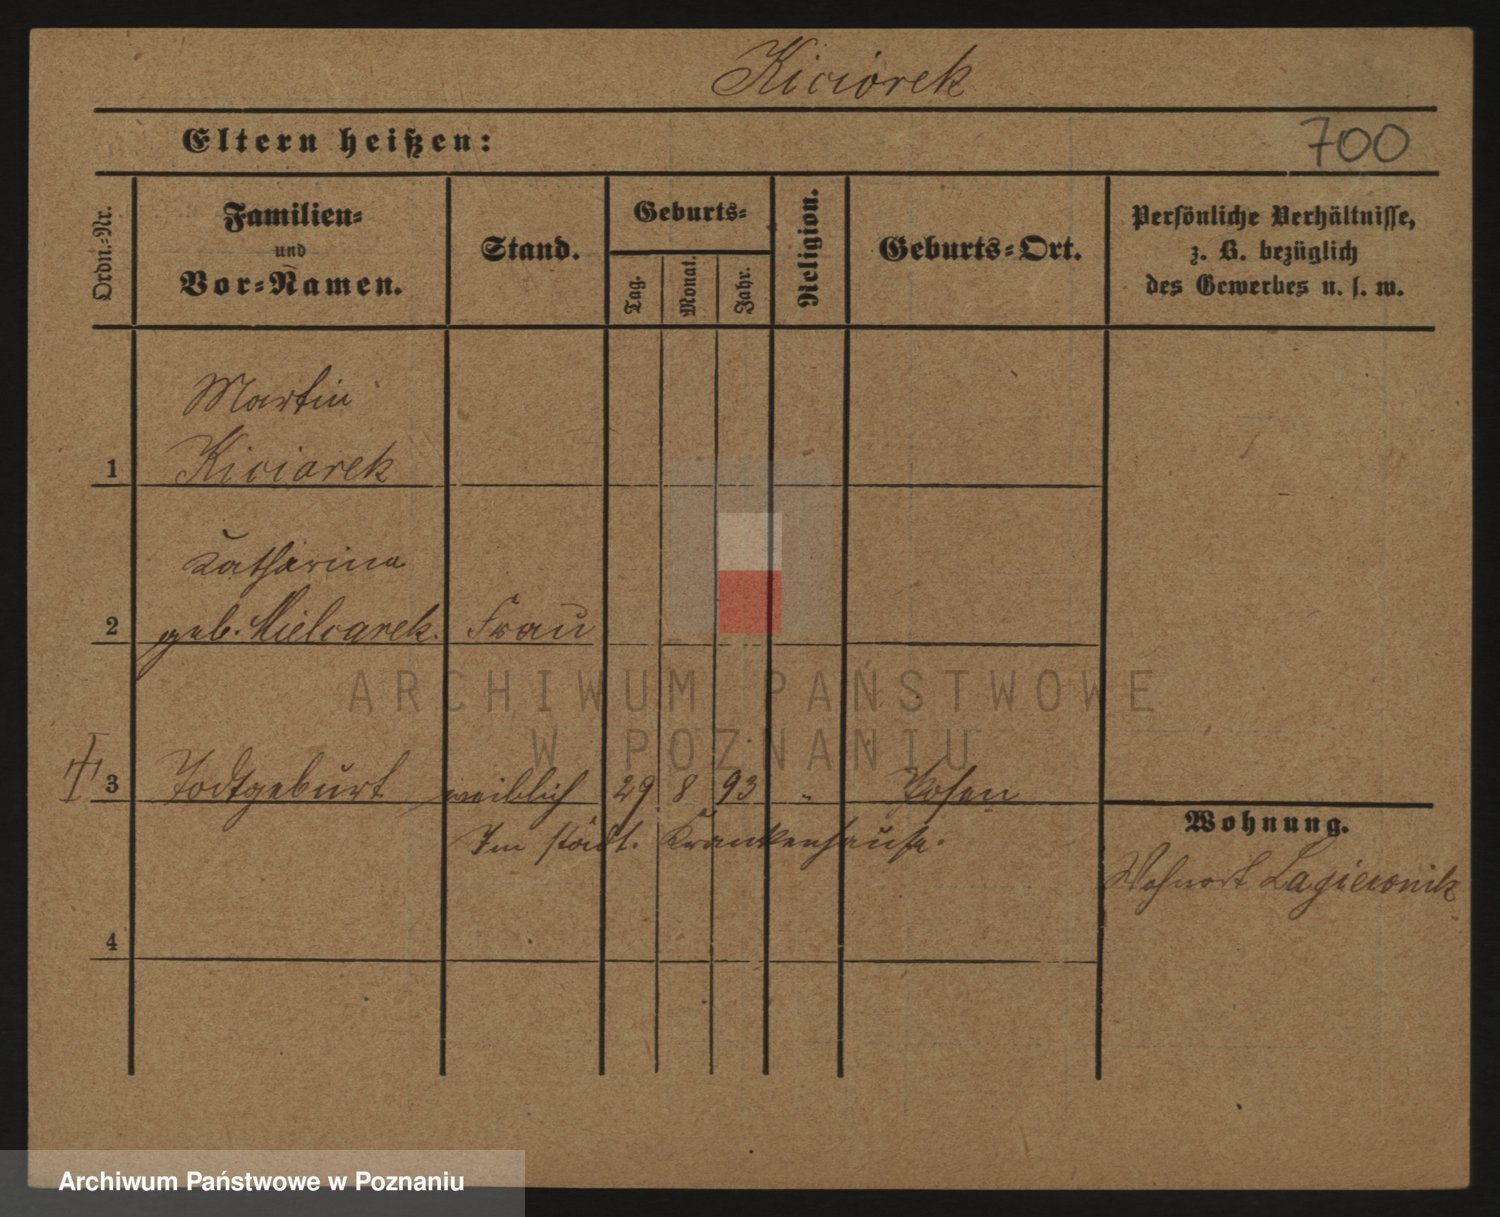 Kiciorek
Eltern heißen:
700
Ordn.-Nr.
Familien-
und
Vor-Namen.
Stand.
Geburts-
Tag.
Monat.
Jahr.
Religion.
Geburts-Ort.
Persönliche Verhältnisse,
z. B. bezüglich
des Gewerbes u. s. w.
Martin
1 Kiciarek
Katharina
2 geb. Mielcarek. Frau
3 Todtgeburt weiblich 29 8 93 " Posen
Im städt. Krankenhause.
Wohnung.
Wohnort Lagiewnik
4
ARCHIWUM PAŃSTWOWE
W POZNANIU
Archiwum Państwowe w Poznaniu